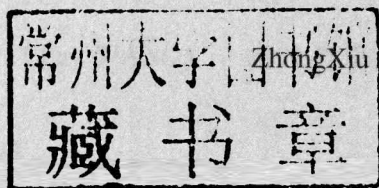 常州大学图书馆
ZhongXiu
藏书章